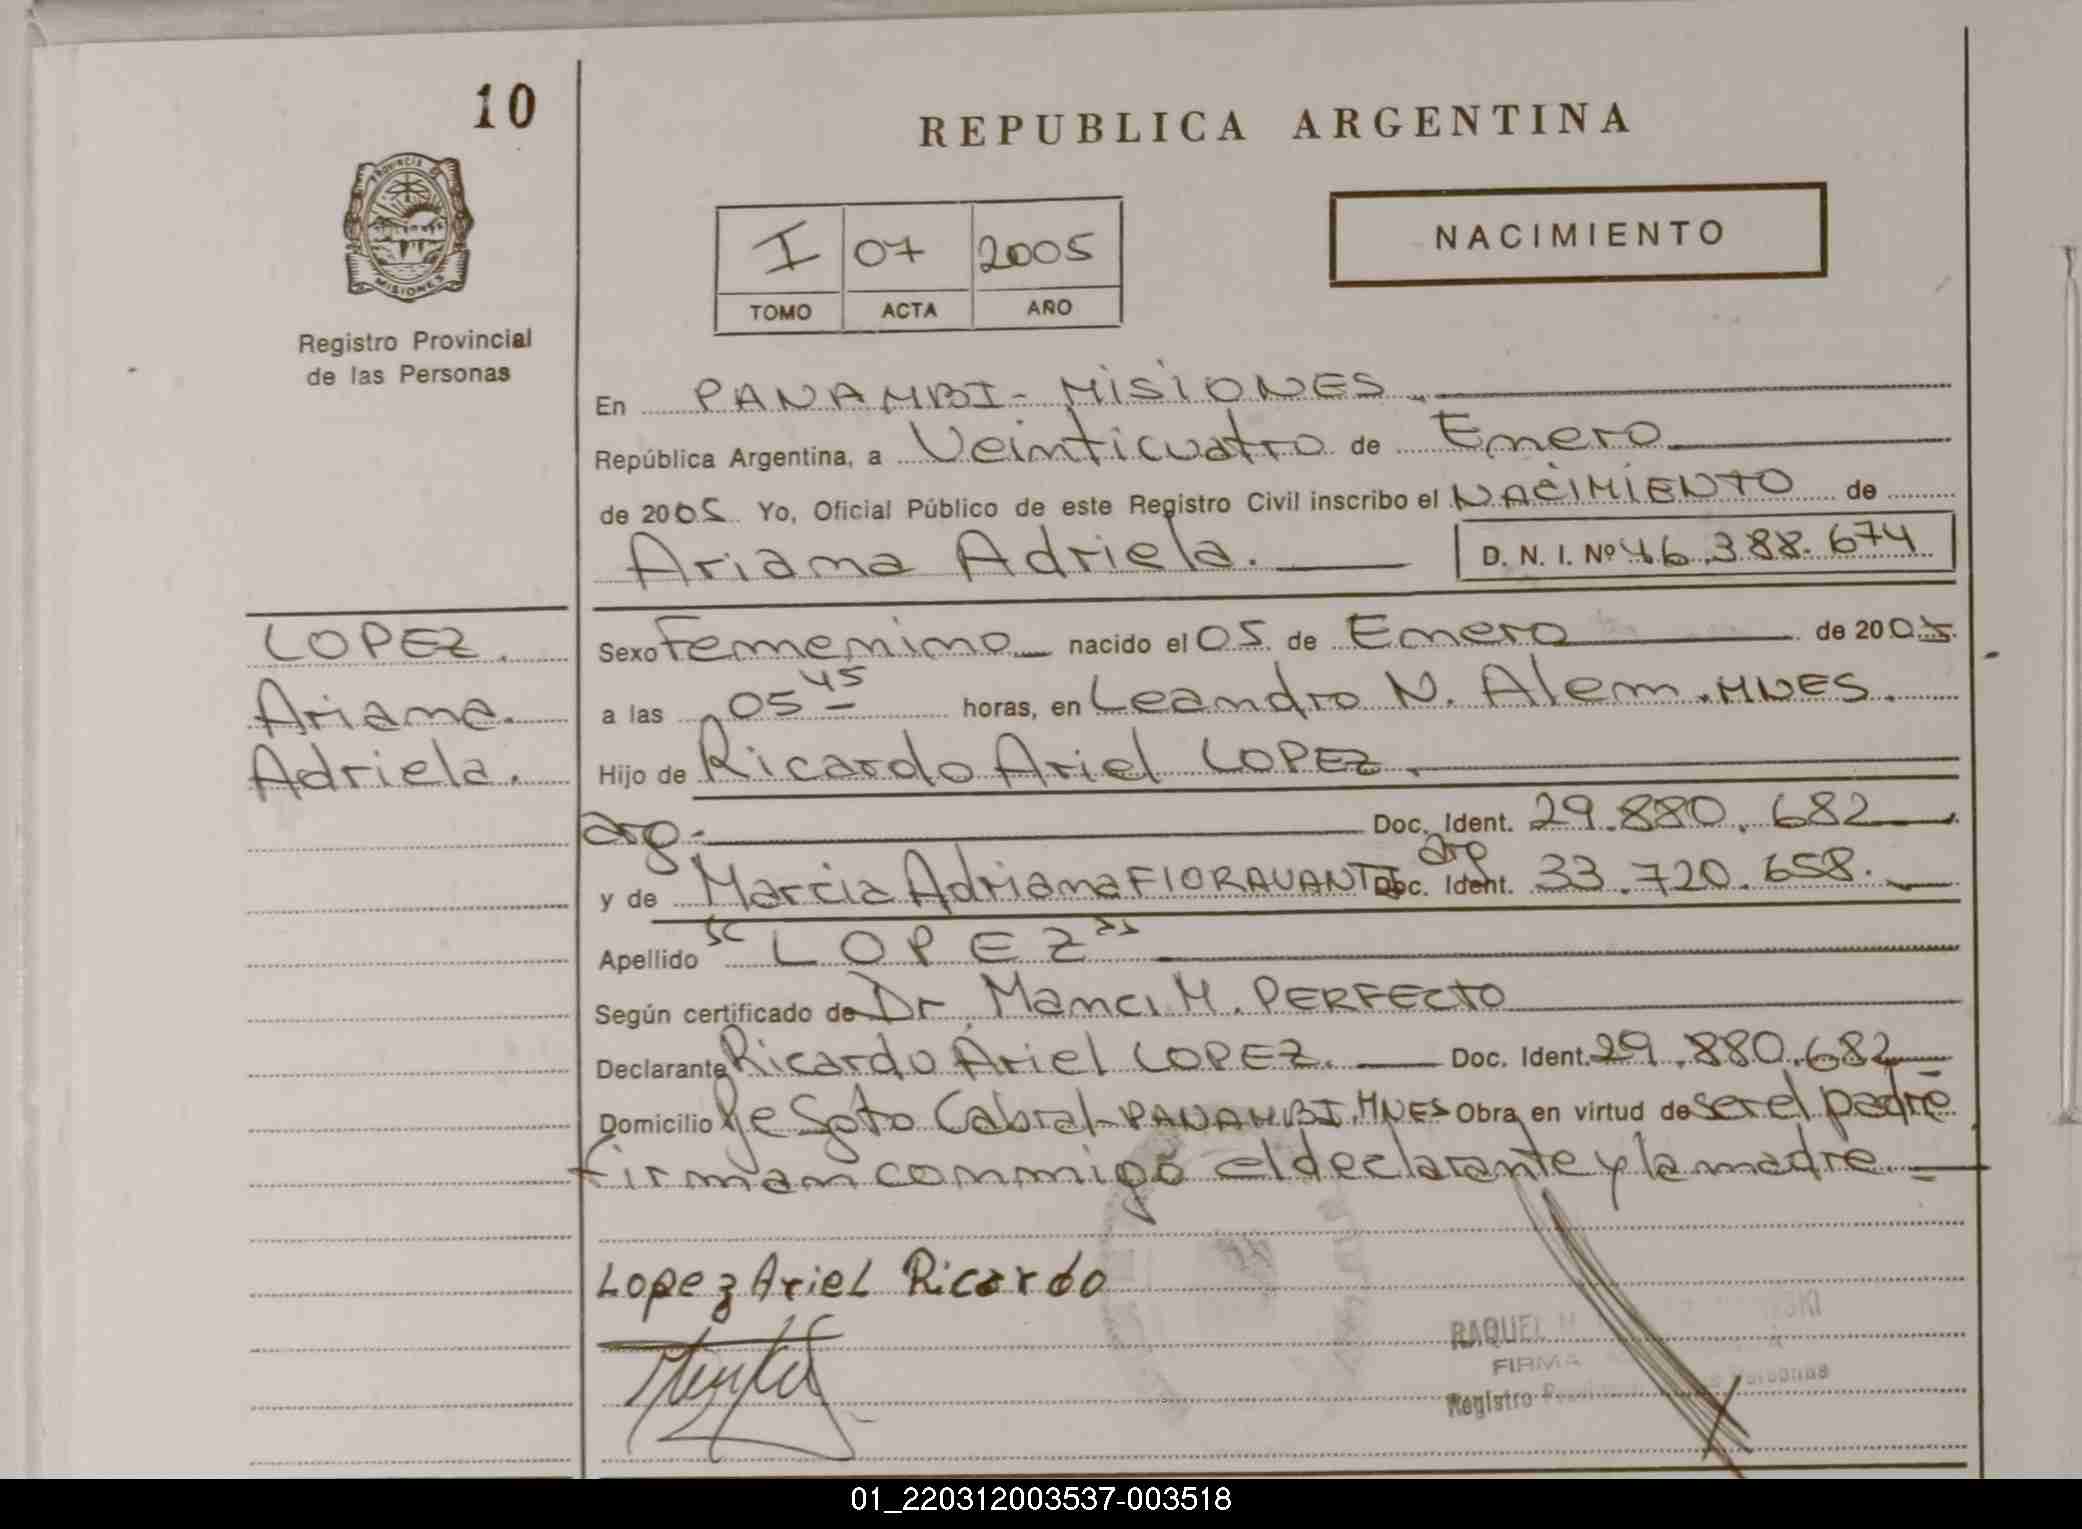 10
REPUBLICA ARGENTINA
PROVINCIA
MISIONES
Registro Provincial
de las Personas
I 07 2005
TOMO ACTA AÑO
NACIMIENTO
En PANAMBI - MISIONES.
República Argentina, a Veinticuatro de Enero
de 2005 Yo, Oficial Público de este Registro Civil inscribo el NACIMIENTO de
Ariana Adriela. D. N. I. Nº 46.388.674
LOPEZ.
Ariana.
Adriela.
Sexo Femenino nacido el 05 de Enero de 2005.
a las 05 45 horas, en Leandro N. Alem. MNES.
Hijo de Ricardo Ariel LOPEZ.
arg. Doc. Ident. 29.880.682
y de Marcia Adriana FIORAVANTI arg Doc. Ident. 33.720.658.
Apellido "LOPEZ"
Según certificado de Dr. M. PERFECTO
Declarante Ricardo Ariel LOPEZ. Doc. Ident. 29.880.682
Domicilio Pje Sgto Cabral - PANAMBI, MNES Obra en virtud de ser el padre
firman conmigo el declarante y la madre.
Lopez Ariel Ricardo
RAQUEL
FIRMA
Registro Personas
01_220312003537-003518